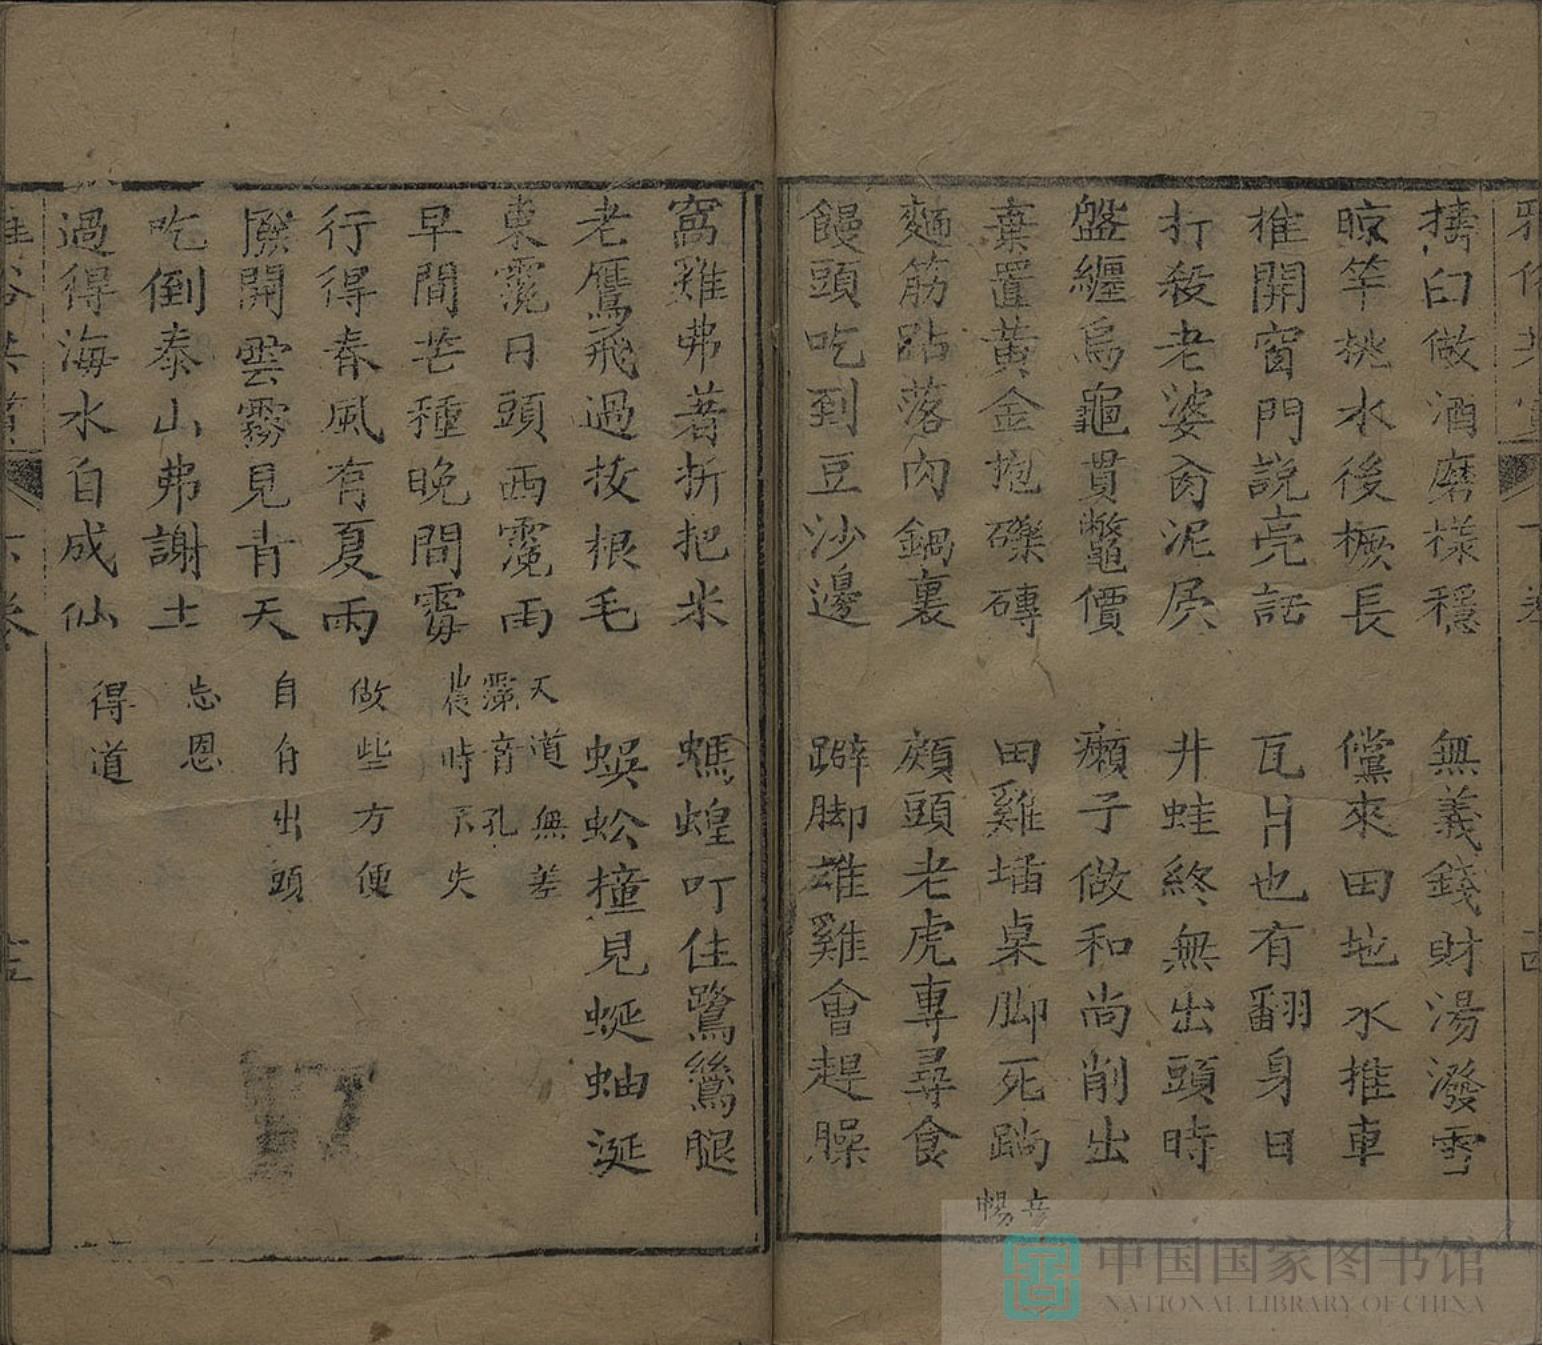 擣臼做酒磨樣穩　無義錢財湯潑雪
晾竿挑水後橛長　儻來田地水推車
推開窗門說亮話　瓦爿也有翻身日
打殺老婆肏泥屄　井蛙終無出頭時
盤纏烏龜貫鱉價　癩子做和尚削出
棄置黃金抱礫磚　田雞墦桌脚死䠀
音暢
麵筋跕落肉鍋裏　頗頭老虎專尋食
饅頭吃到豆沙邊　躃脚雄雞會趕臊
窩雞弗著折把米　螞蝗叮住鷺鷥腿
老鷹飛過抜根毛　蜈蚣撞見蜒蚰涎
東霓日頭西霓雨　天道無差
霓音孔
早間芒種晚間雺　農時不失
行得春風有夏雨　做些方便
撥開雲霧見青天　自有出頭
吃倒泰山弗謝土　忘恩
過得海水自成仙　得道
中国国家图书馆
NATIONAL LIBRARY OF CHINA